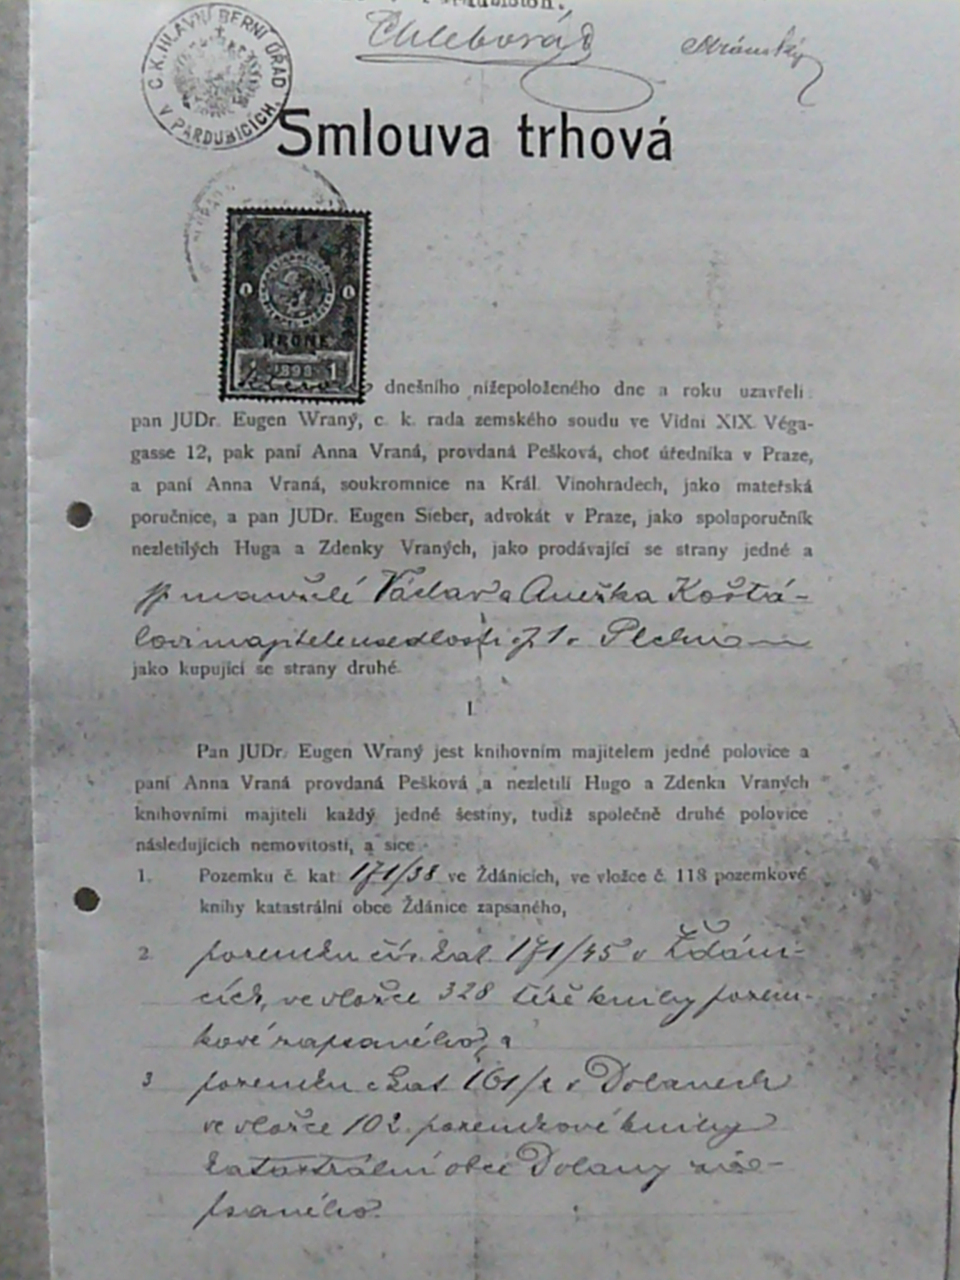 C. K. HLAVNÍ BERNÍ ÚŘAD
V PARDUBICÍCH.
Chleborád
Smlouva trhová
1
KRONE
1898 1
dnešního nížepoloženého dne a roku uzavřeli
pan JUDr. Eugen Wraný, c. k. rada zemského soudu ve Vídni XIX. Véga-
gasse 12, pak paní Anna Vraná, provdaná Pešková, choť úředníka v Praze,
a paní Anna Vraná, soukromnice na Král. Vinohradech, jako mateřská
poručnice, a pan JUDr. Eugen Sieber, advokát v Praze, jako spoluporučník
nezletilých Huga a Zdenky Vraných, jako prodávající se strany jedné a
manželé Václav a Anežka Košťá-
lovi majitelé usedlosti čp 1 v
jako kupující se strany druhé.
I.
Pan JUDr. Eugen Wraný jest knihovním majitelem jedné polovice a
paní Anna Vraná provdaná Pešková a nezletilí Hugo a Zdenka Vraných
knihovními majiteli každý jedné šestiny, tudíž společně druhé polovice
následujících nemovitostí, a sice:
1. Pozemku č. kat. 171/38 ve Ždánicích, ve vložce č. 118 pozemkové
knihy katastrální obce Ždánice zapsaného,
2 pozemku čís. kat. 171/45 v Ždáni-
cích, ve vložce 328 téže knihy pozem-
kové zapsaného, a
3 pozemku č kat 161/2 v Dolanech
ve vložce 102 pozemkové knihy
katastrální obce Dolany zap-
saného.